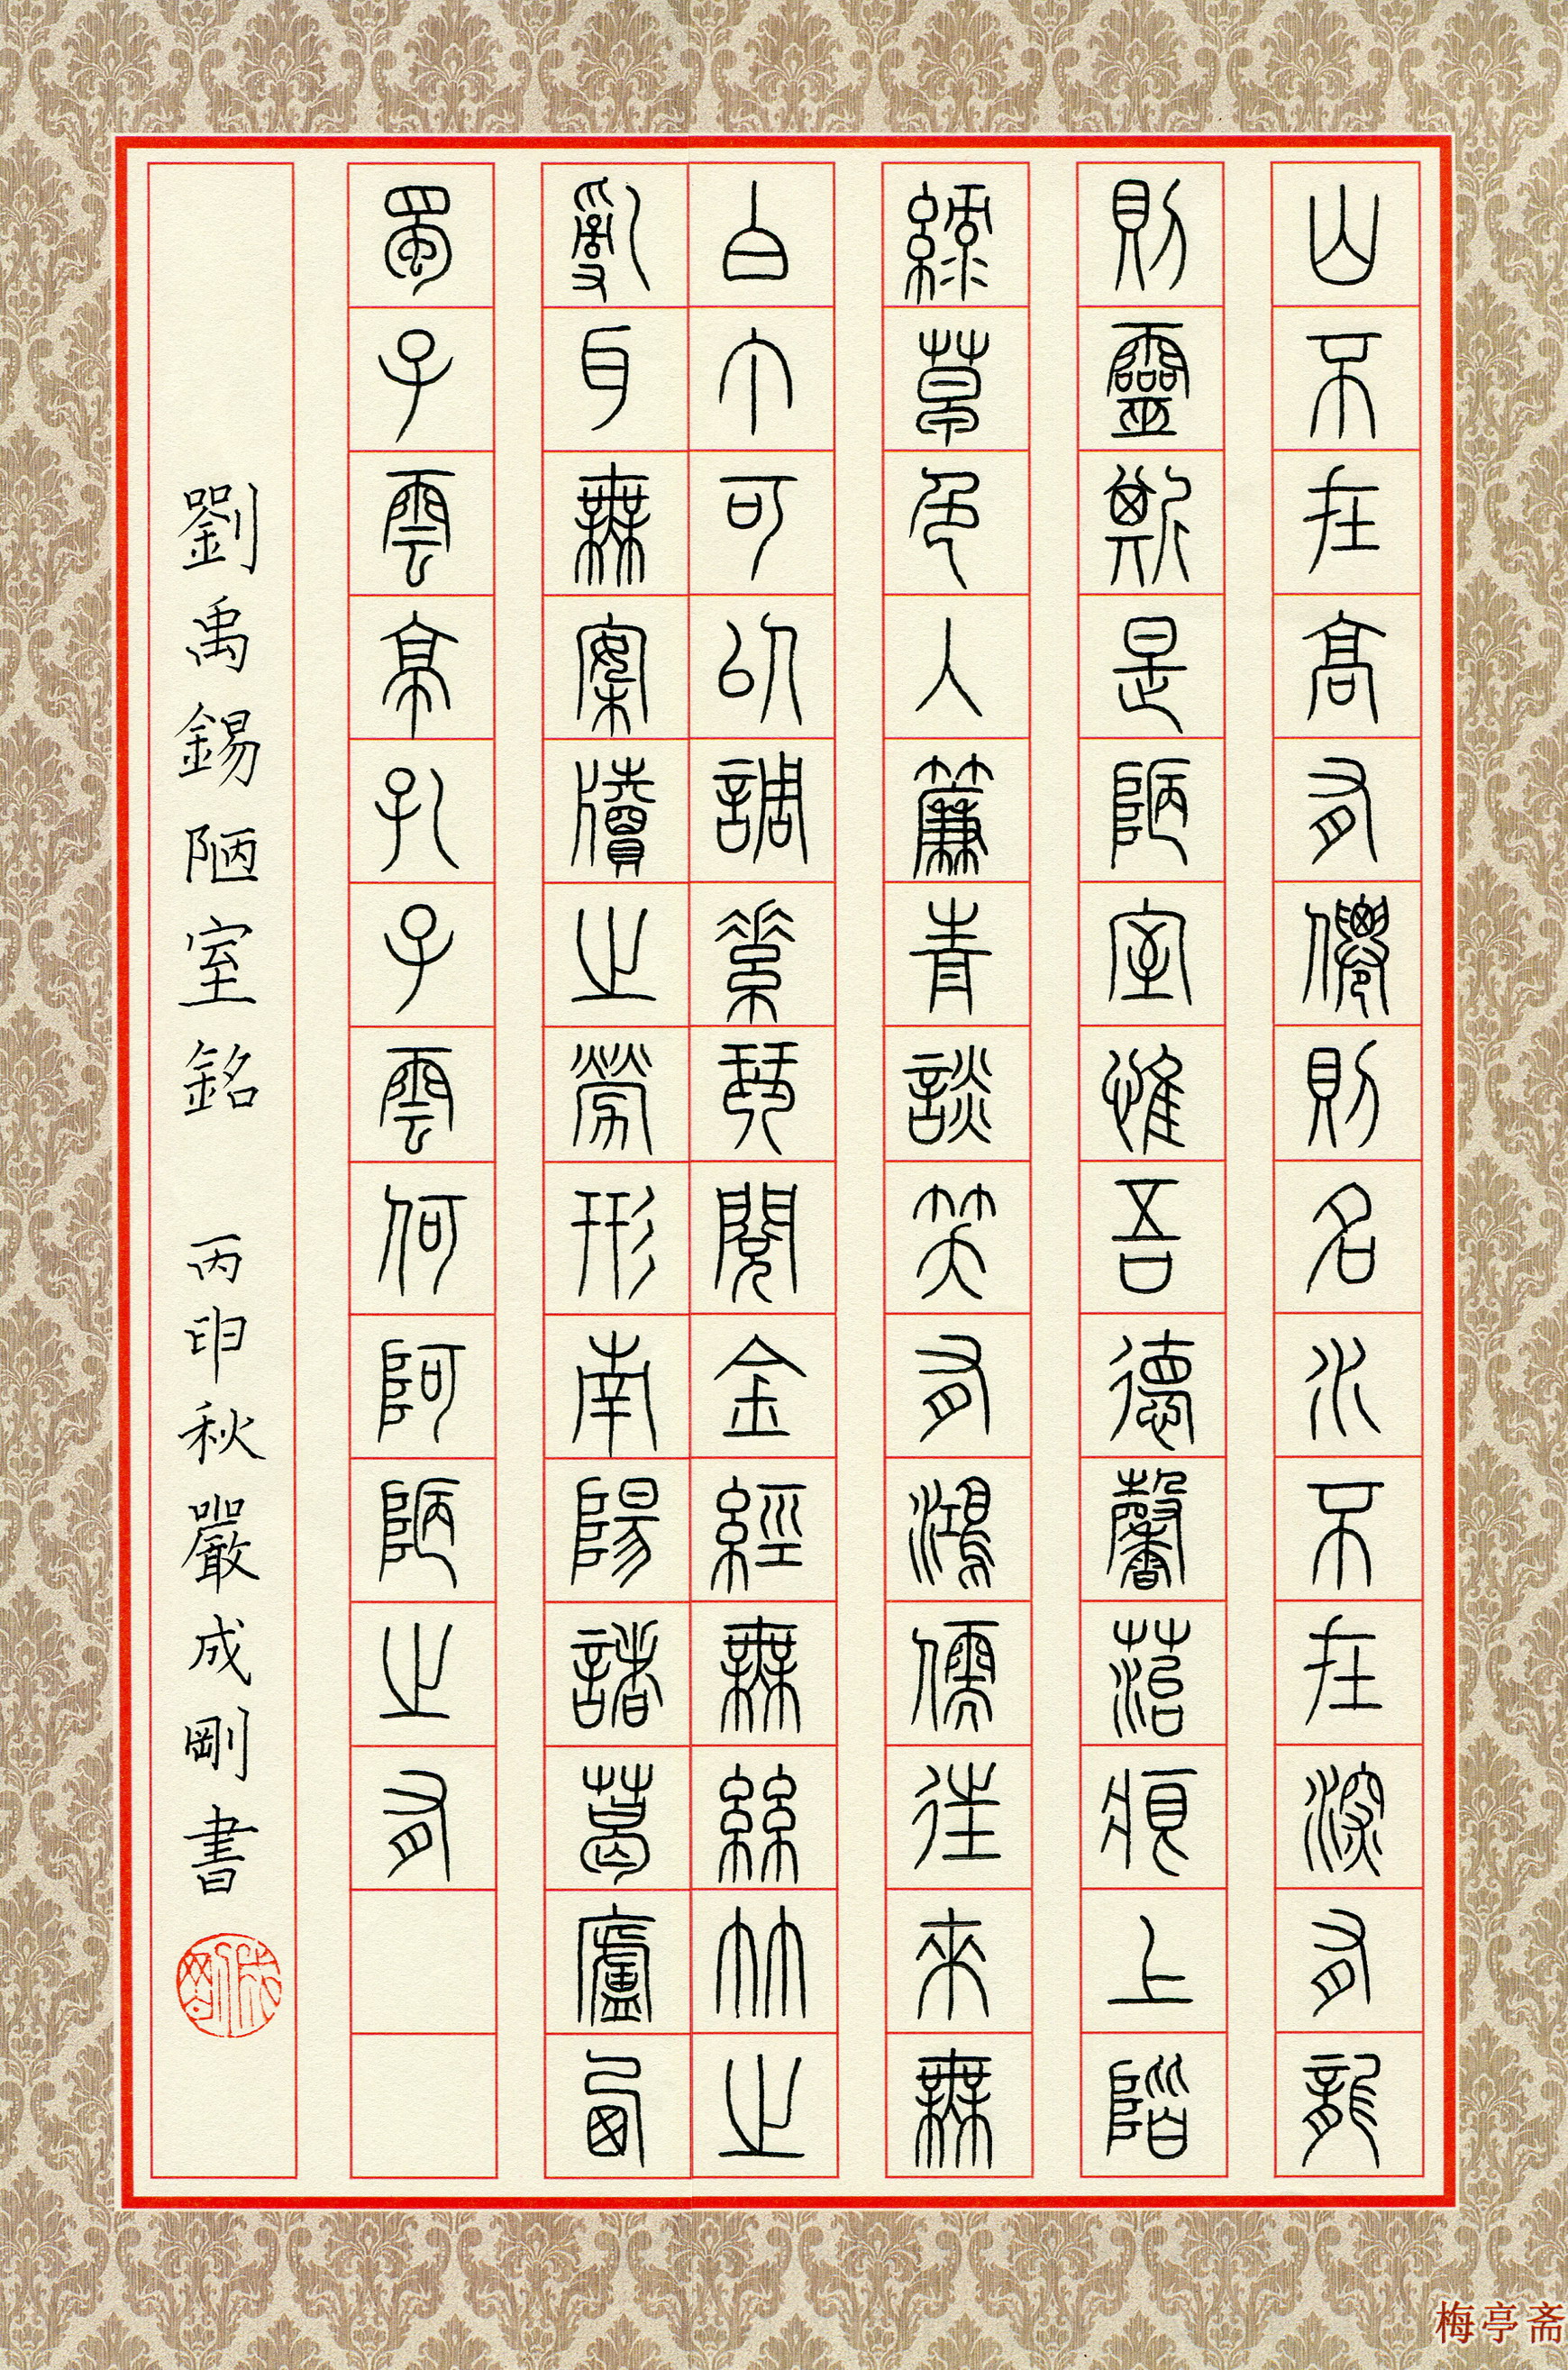 山不在高有僊則名水不在深有龍
則靈斯是陋室惟吾德馨菭痕上階
綠草色人簾青談笑有鴻儒往來無
白丁可以調素琴閱金經無絲竹之
亂耳無案牘之勞形南陽諸葛廬西
蜀子雲亭孔子雲何阿陋之有
劉禹錫陋室銘 丙申秋嚴成剛書
梅亭斋